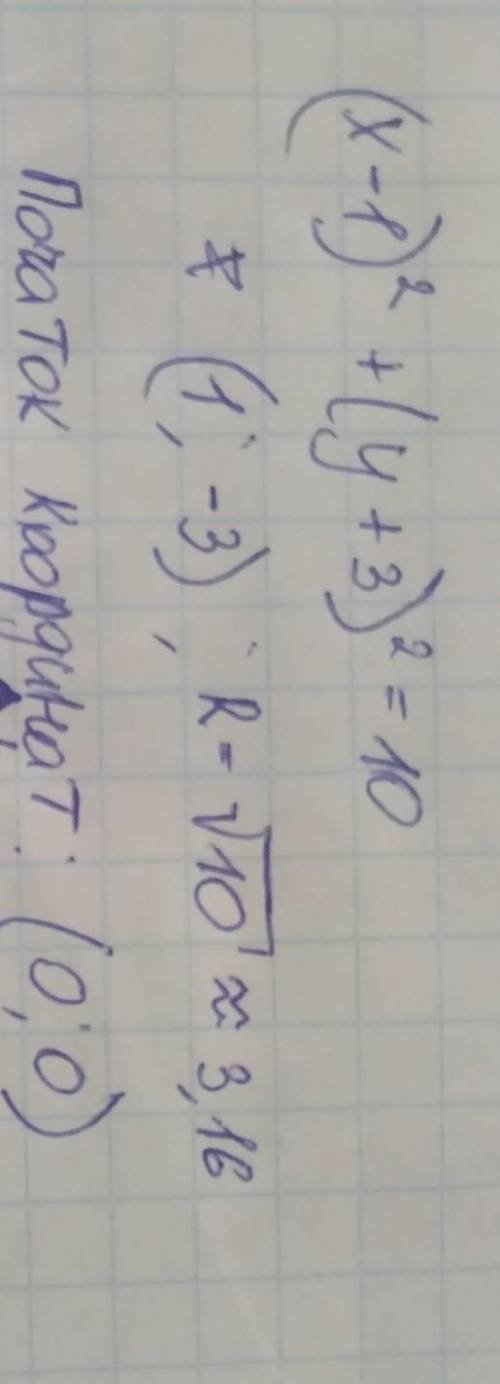 (x-1)² + (y+3)² = 10
* (1; -3); R = √10 ≈ 3,16
Початок координат: (0; 0)